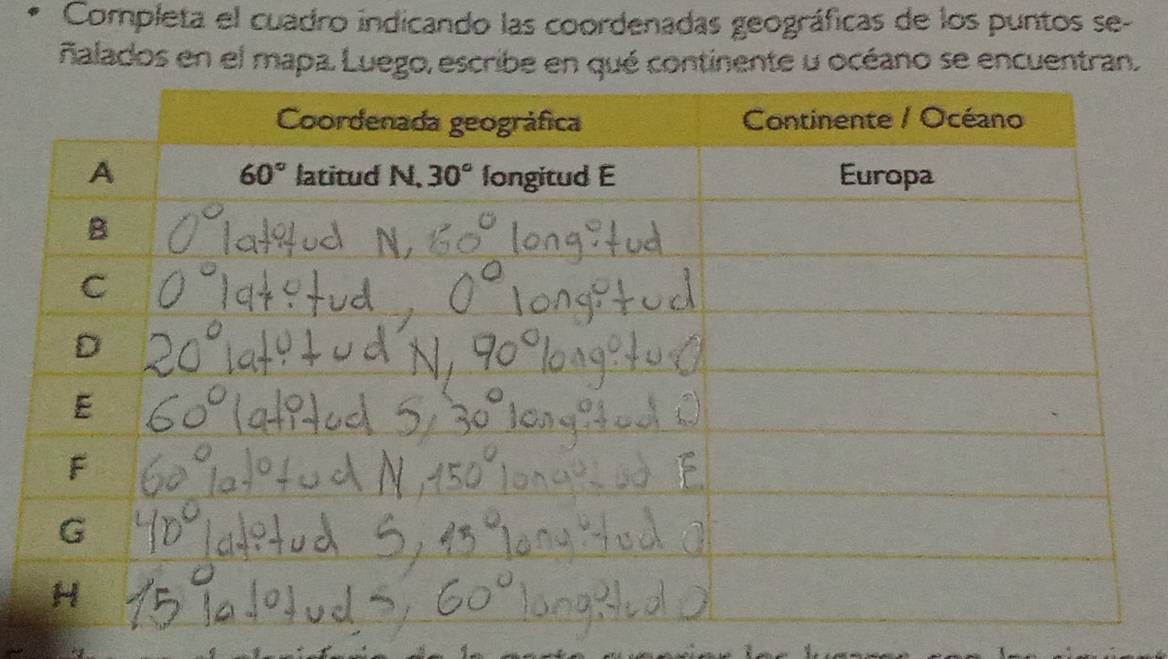 • Completa el cuadro indicando las coordenadas geográficas de los puntos se-
ñalados en el mapa. Luego, escribe en qué continente u océano se encuentran.
Coordenada geográfica Continente / Océano
A 60° latitud N. 30° longitud E Europa
B 0° latitud N, 60° longitud
C 0° latitud, 0° longitud
D 20° latitud N, 90° longitud O
E 60° latitud S, 30° longitud O
F 60° latitud N, 150° longitud E.
G 40° latitud S, longitud O
H 15° latitud S, 60° longitud O